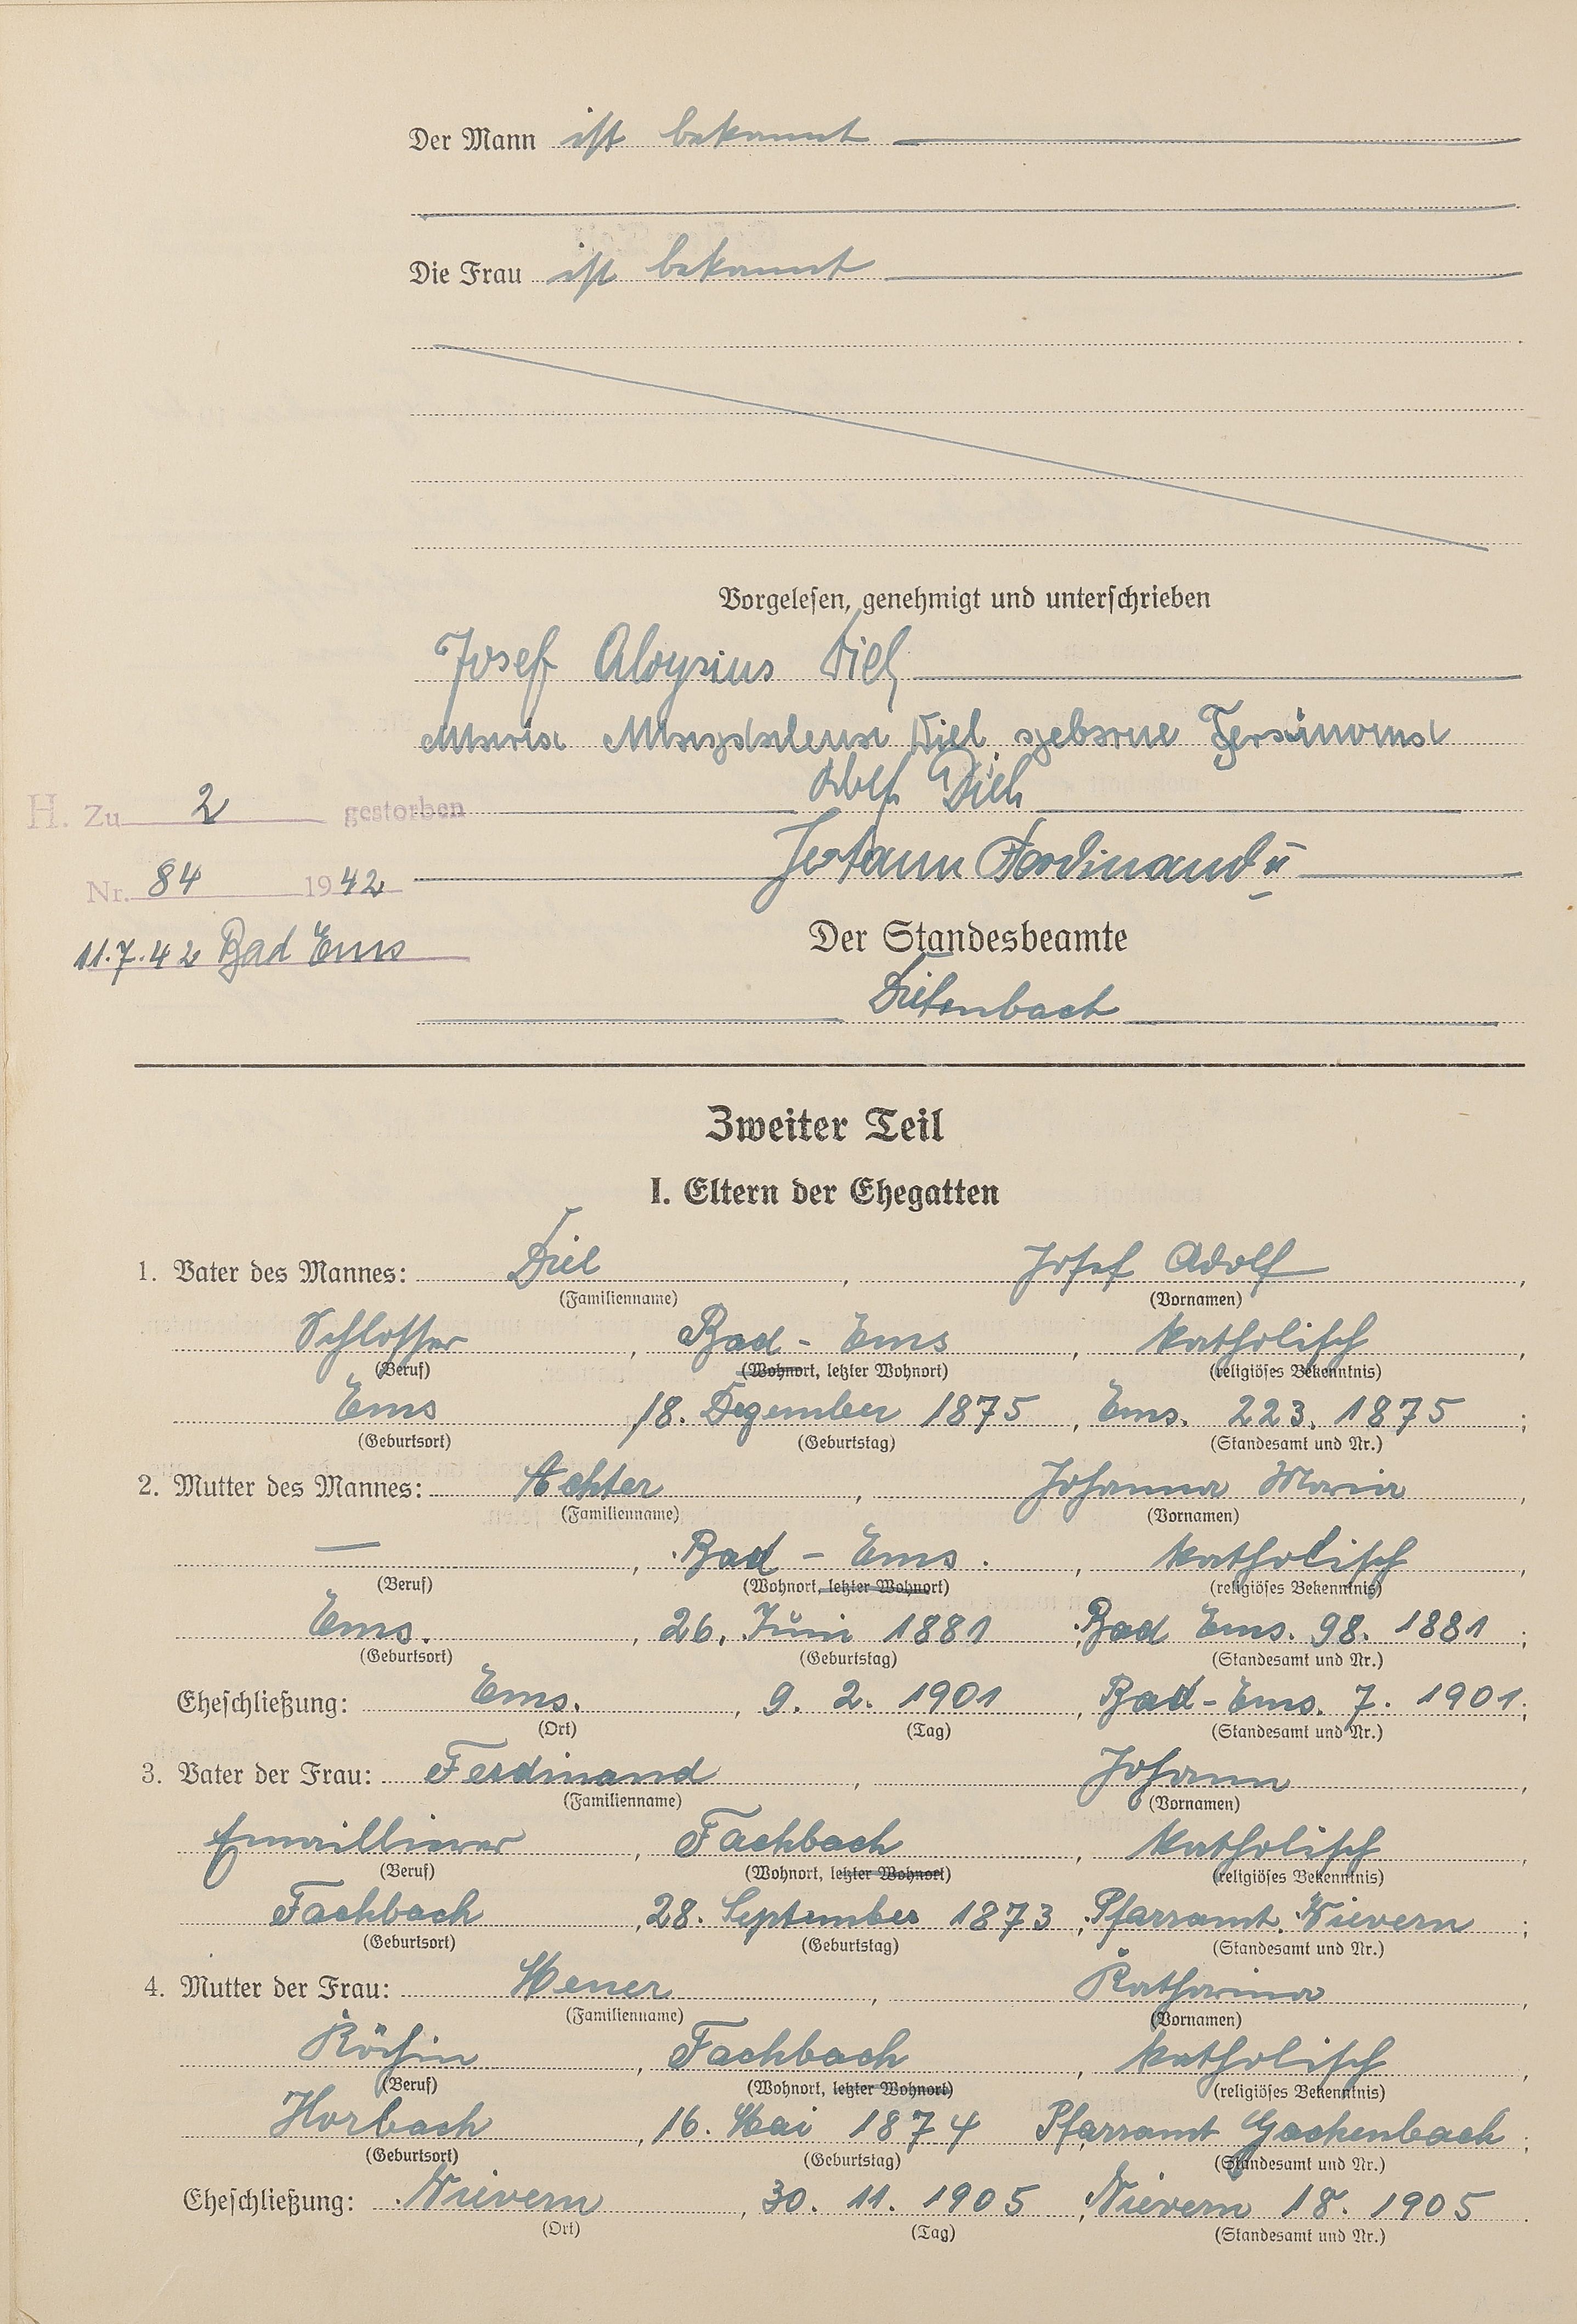 Der Mann ist bekannt
Die Frau ist bekannt
Vorgelesen, genehmigt und unterschrieben
Josef Aloysius Diel
Maria Magdalena Diel geborne Ferdinand
Adolf Diel
H. Zu 2 gestorben
Johann Ferdinand II
Nr. 84 1942
Der Standesbeamte
11.7.42 Bad Ems
Diefenbach
Zweiter Teil
I. Eltern der Ehegatten
1. Vater des Mannes: Diel, Josef Adolf,
(Familienname) (Vornamen)
Schlosser, Bad-Ems, katholisch,
(Beruf) (Wohnort, letzter Wohnort) (religiöses Bekenntnis)
Ems, 18. Dezember 1875, Ems. 223. 1875;
(Geburtsort) (Geburtstag) (Standesamt und Nr.)
2. Mutter des Mannes: Achter, Johanna Maria,
(Familienname) (Vornamen)
—, Bad-Ems., katholisch,
(Beruf) (Wohnort, letzter Wohnort) (religiöses Bekenntnis)
Ems., 26. Juni 1881, Bad Ems. 98. 1881;
(Geburtsort) (Geburtstag) (Standesamt und Nr.)
Eheschließung: Ems., 9. 2. 1901, Bad-Ems. 7. 1901;
(Ort) (Tag) (Standesamt und Nr.)
3. Vater der Frau: Ferdinand, Johann,
(Familienname) (Vornamen)
Emaillierer, Fachbach, katholisch,
(Beruf) (Wohnort, letzter Wohnort) (religiöses Bekenntnis)
Fachbach, 28. September 1873, Pfarramt. Nievern;
(Geburtsort) (Geburtstag) (Standesamt und Nr.)
4. Mutter der Frau: Katharina,
(Familienname) (Vornamen)
Köchin, Fachbach, katholisch,
(Beruf) (Wohnort, letzter Wohnort) (religiöses Bekenntnis)
Horbach, 16. Mai 1874 Pfarramt Gackenbach;
(Geburtsort) (Geburtstag) (Standesamt und Nr.)
Eheschließung: Nievern, 30. 11. 1905, Nievern 18. 1905.
(Ort) (Tag) (Standesamt und Nr.)